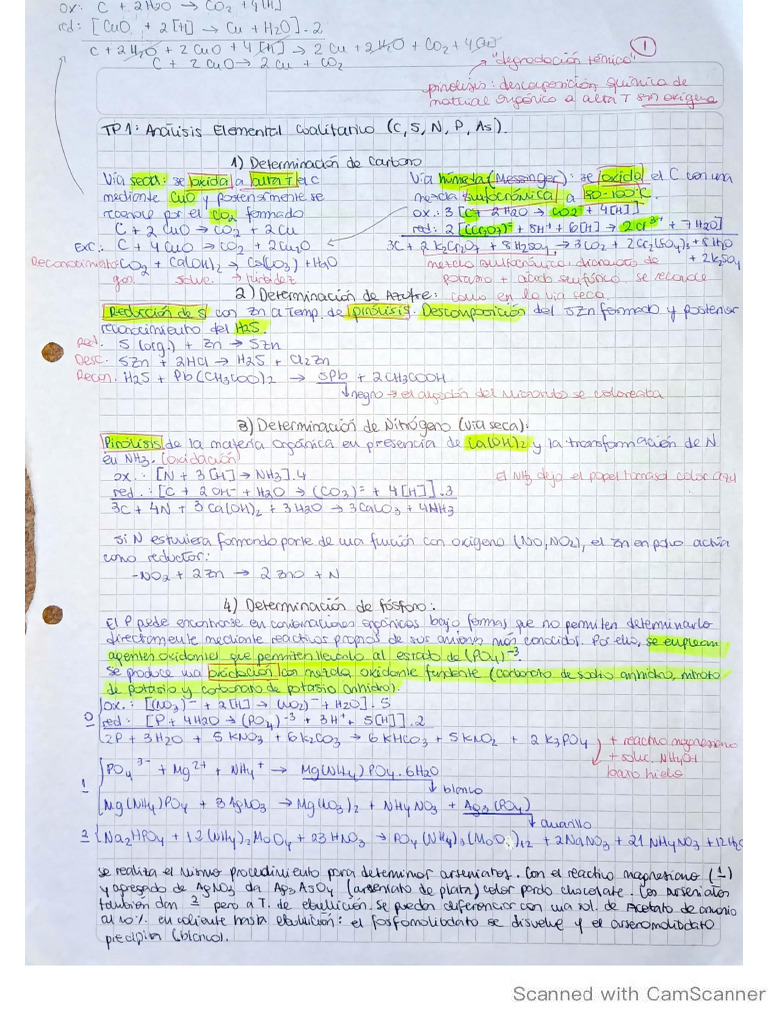 ox: C + 2H2O → CO2 + 4[H]
red: [CuO + 2[H] → Cu + H2O].2
C + 2H2O + 2CuO + 4[H] → 2Cu + 2H2O + CO2 + 4[H]
C + 2CuO → 2Cu + CO2
1
"degradación térmica"
pirólisis: descomposición química de
material orgánico a alta T sin oxígeno
TP1: Análisis Elemental Cualitativo (C, S, N, P, As).
1) Determinación de Carbono
Vía seca: se oxida a alta T el C
mediante CuO y posteriormente se
reconoce por el CO2 formado
C + 2CuO → CO2 + 2Cu
Exc: C + 4CuO → CO2 + 2Cu2O
Reconocimiento: CO2 + Ca(OH)2 → Ca(CO3) + H2O
gas soluc. → turbidez
Vía húmeda (Messenger): se oxida el C con una
mezcla sulfocrómica a 80-100°C.
ox.: 3[C + 2H2O → CO2 + 4[H]]
red: 2[(Cr2O7)= + 8H+ + 6[H] → 2Cr3+ + 7H2O]
3C + 2K2Cr2O7 + 8H2SO4 → 3CO2 + 2Cr2(SO4)3 + 8H2O
+ 2K2SO4
mezcla sulfocrómica: dicromato de
potasio + ácido sulfúrico se reconoce
como en la vía seca
2) Determinación de Azufre:
Reducción de S con Zn a temp. de pirólisis. Descomposición del SZn formado y posterior
reconocimiento del H2S.
Red. S (org.) + Zn → SZn
Desc. SZn + 2HCl → H2S + Cl2Zn
Recon. H2S + Pb(CH3COO)2 → SPb + 2CH3COOH
negro → el algodón del microtubo se coloreaba
3) Determinación de Nitrógeno (vía seca):
Pirólisis de la materia orgánica en presencia de Ca(OH)2 y la transformación de N
en NH3. (oxidación)
ox.: [N + 3[H] → NH3].4
red.: [C + 2OH- + H2O → (CO3)= + 4[H]].3
3C + 4N + 3Ca(OH)2 + 3H2O → 3CaCO3 + 4NH3
el NH3 dejó el papel tornasol color azul
Si N estuviera formando parte de una función con oxígeno (NO, NO2), el Zn en polvo actúa
como reductor:
-NO2 + 2Zn → 2ZnO + N
4) Determinación de fósforo:
El P puede encontrarse en combinaciones orgánicas bajo formas que no permiten determinarlo
directamente mediante reactivos propios de sus aniones más conocidos. Por ello, se emplean
agentes oxidantes que permiten llevarlo al estado de (PO4)-3
Se produce una oxidación con mezcla oxidante fundente (carbonato de sodio anhidro, nitrato
de potasio y carbonato de potasio anhidro).
ox.: [(NO3)- + 2[H] → (NO2)- + H2O].5
0 red: [P + 4H2O → (PO4)-3 + 3H+ + 5[H]].2
2P + 3H2O + 5KNO3 + 6K2CO3 → 6KHCO3 + 5KNO2 + 2K3PO4
+ reactivo magnesiano
+ soluc. NH4OH
baño hielo
PO4 3- + Mg2+ + NH4+ → Mg(NH4)PO4.6H2O
1
blanco
Mg(NH4)PO4 + 3AgNO3 → Mg(NO3)2 + NH4NO3 + Ag3(PO4)
amarillo
2 Na2HPO4 + 12(NH4)2MoO4 + 23HNO3 → PO4(NH4)3(MoO3)12 + 2NaNO3 + 21NH4NO3 + 12H2O
Se realiza el mismo procedimiento para determinar arseniatos. Con el reactivo magnesiano (1)
y agregado de AgNO3 da Ag3AsO4 (arseniato de plata) color pardo chocolate. Los arseniatos
también dan 2 pero a T. de ebullición. Se pueden diferenciar con una sol. de Acetato de amonio
al 10% en caliente hasta ebullición: el fosfomolibdato se disuelve y el arsenomolibdato
precipita (blanco).
Scanned with CamScanner